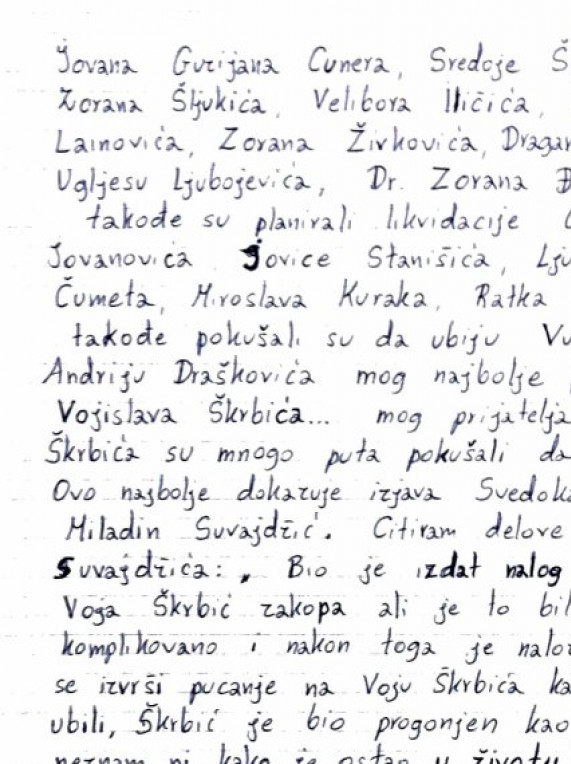 Jovana Guzijana Cunera, Sredoje Š
Zorana Šljukića, Velibora Iličića,
Lainovića, Zorana Živkovića, Dragan
Ugljesu Ljubojevića, Dr. Zorana Đ
takođe su planirali likvidacije
Jovanovića Jovice Stanišića, Lju
Čumeta, Miroslava Kuraka, Ratka
takođe pokušali su da ubiju Vu
Andriju Draškovića mog najbolje
Vojislava Škrbića... mog prijatelja
Škrbića su mnogo puta pokušali da
Ovo najbolje dokazuje izjava Svedoka
Miladin Suvajdžić. Citiram delove
Suvajdžića: „ Bio je izdat nalog
Voja Škrbić zakopa ali je to bil
komplikovano i nakon toga je nalo
se izvrši pucanje na Voju Škrbića ka
ubili, Škrbić je bio progonjen kao
neznam ni kako je ostao u životu